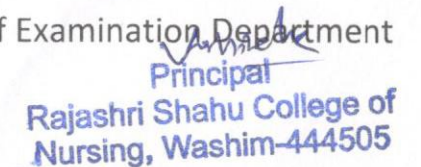 f Examination Department
Principal
Rajashri Shahu College of
Nursing, Washim-444505